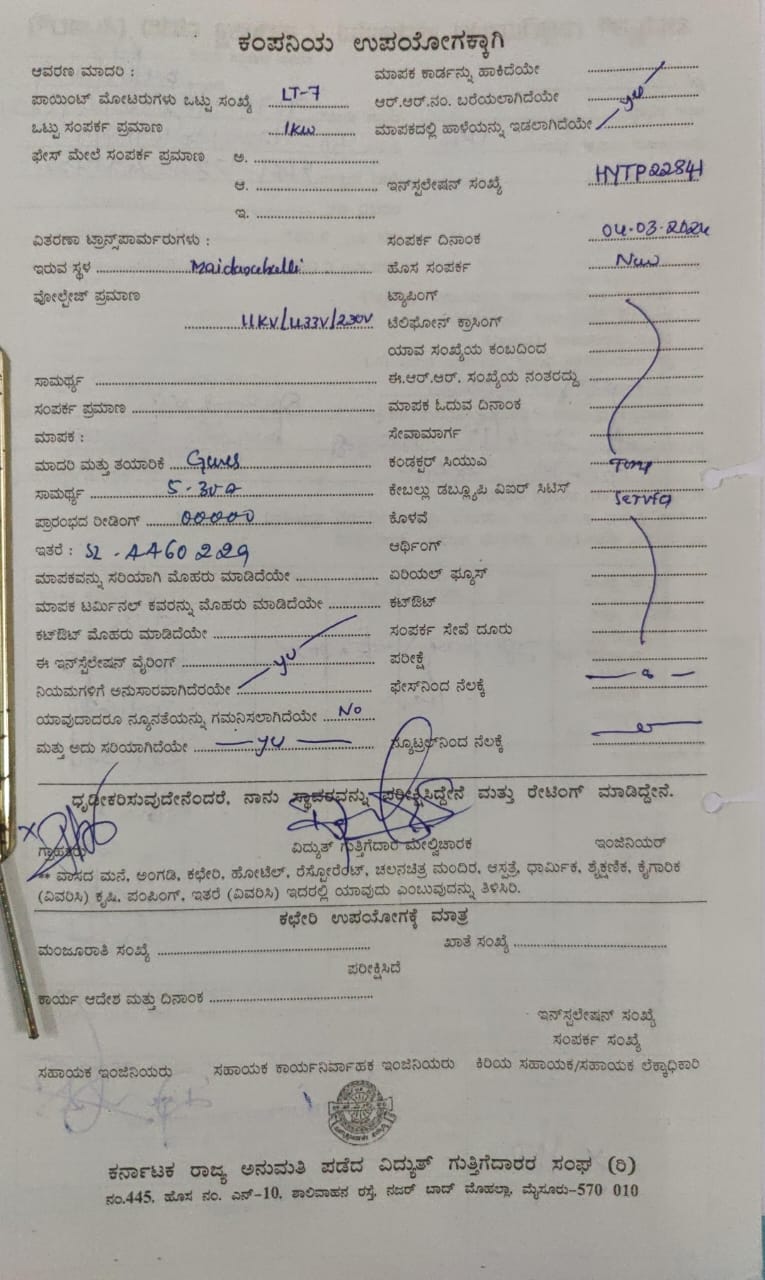 ಕಂಪನಿಯ ಉಪಯೋಗಕ್ಕಾಗಿ
ಆವರಣ ಮಾದರಿ :
ಪಾಯಿಂಟ್ ಮೋಟರುಗಳು ಒಟ್ಟು ಸಂಖ್ಯೆ LT-7
ಒಟ್ಟು ಸಂಪರ್ಕ ಪ್ರಮಾಣ 1KW
ಫೇಸ್ ಮೇಲೆ ಸಂಪರ್ಕ ಪ್ರಮಾಣ ಅ.
ಆ.
ಇ.
ವಿತರಣಾ ಟ್ರಾನ್ಸ್‌ಪಾರ್ಮರುಗಳು :
ಇರುವ ಸ್ಥಳ
ವೋಲ್ಟೇಜ್ ಪ್ರಮಾಣ
11KV/433V/230V
ಸಾಮರ್ಥ್ಯ
ಸಂಪರ್ಕ ಪ್ರಮಾಣ
ಮಾಪಕ :
ಮಾದರಿ ಮತ್ತು ತಯಾರಿಕೆ
ಸಾಮರ್ಥ್ಯ 5-30A
ಪ್ರಾರಂಭದ ರೀಡಿಂಗ್ 00000
ಇತರೆ : SL-AA60229
ಮಾಪಕವನ್ನು ಸರಿಯಾಗಿ ಮೊಹರು ಮಾಡಿದೆಯೇ
ಮಾಪಕ ಟರ್ಮಿನಲ್ ಕವರನ್ನು ಮೊಹರು ಮಾಡಿದೆಯೇ
ಕಟ್‌ಔಟ್ ಮೊಹರು ಮಾಡಿದೆಯೇ
ಈ ಇನ್‌ಸ್ಟಲೇಷನ್ ವೈರಿಂಗ್ yes
ನಿಯಮಗಳಿಗೆ ಅನುಸಾರವಾಗಿದೆರಯೇ
ಯಾವುದಾದರೂ ನ್ಯೂನತೆಯನ್ನು ಗಮನಿಸಲಾಗಿದೆಯೇ No
ಮತ್ತು ಅದು ಸರಿಯಾಗಿದೆಯೇ yes
ಮಾಪಕ ಕಾರ್ಡನ್ನು ಹಾಕಿದೆಯೇ
ಆರ್.ಆರ್.ನಂ. ಬರೆಯಲಾಗಿದೆಯೇ yes
ಮಾಪಕದಲ್ಲಿ ಹಾಳೆಯನ್ನು ಇಡಲಾಗಿದೆಯೇ
ಇನ್‌ಸ್ಟಲೇಷನ್ ಸಂಖ್ಯೆ HYTP22841
ಸಂಪರ್ಕ ದಿನಾಂಕ 04-03-2024
ಹೊಸ ಸಂಪರ್ಕ New
ಟ್ಯಾಪಿಂಗ್
ಟೆಲಿಫೋನ್ ಕ್ರಾಸಿಂಗ್
ಯಾವ ಸಂಖ್ಯೆಯ ಕಂಬದಿಂದ
ಈ.ಆರ್.ಆರ್. ಸಂಖ್ಯೆಯ ನಂತರದ್ದು
ಮಾಪಕ ಓದುವ ದಿನಾಂಕ
ಸೇವಾಮಾರ್ಗ
ಕಂಡಕ್ಟರ್ ಸಿಯುಎ Temp
ಕೇಬಲ್ಲು ಡಬ್ಲ್ಯೂಪಿ ವಿಐರ್ ಸಿಟಿಸ್ Service
ಕೊಳವೆ
ಆರ್ಥಿಂಗ್
ಏರಿಯಲ್ ಫ್ಯೂಸ್
ಕಟ್‌ಔಟ್
ಸಂಪರ್ಕ ಸೇವೆ ದೂರು
ಪರೀಕ್ಷೆ
ಫೇಸ್‌ನಿಂದ ನೆಲಕ್ಕೆ
ನ್ಯೂಟ್ರಲ್‌ನಿಂದ ನೆಲಕ್ಕೆ
ಧೃಡೀಕರಿಸುವುದೇನೆಂದರೆ, ನಾನು ಸ್ಥಾವರವನ್ನು ಪರೀಕ್ಷಿಸಿದ್ದೇನೆ ಮತ್ತು ರೇಟಿಂಗ್ ಮಾಡಿದ್ದೇನೆ.
ಗ್ರಾಹಕರು ವಿದ್ಯುತ್ ಗುತ್ತಿಗೆದಾರ ಮೇಲ್ವಿಚಾರಕ ಇಂಜಿನಿಯರ್
** ವಾಸದ ಮನೆ, ಅಂಗಡಿ, ಕಛೇರಿ, ಹೋಟೆಲ್, ರೆಸ್ಟೋರೆಂಟ್, ಚಲನಚಿತ್ರ ಮಂದಿರ, ಆಸ್ಪತ್ರೆ, ಧಾರ್ಮಿಕ, ಶೈಕ್ಷಣಿಕ, ಕೈಗಾರಿಕ
(ವಿವರಿಸಿ) ಕೃಷಿ, ಪಂಪಿಂಗ್, ಇತರೆ (ವಿವರಿಸಿ) ಇದರಲ್ಲಿ ಯಾವುದು ಎಂಬುವುದನ್ನು ತಿಳಿಸಿರಿ.
ಕಛೇರಿ ಉಪಯೋಗಕ್ಕೆ ಮಾತ್ರ
ಮಂಜೂರಾತಿ ಸಂಖ್ಯೆ ಖಾತೆ ಸಂಖ್ಯೆ
ಪರೀಕ್ಷಿಸಿದೆ
ಕಾರ್ಯ ಆದೇಶ ಮತ್ತು ದಿನಾಂಕ
ಇನ್‌ಸ್ಟಲೇಷನ್ ಸಂಖ್ಯೆ
ಸಂಪರ್ಕ ಸಂಖ್ಯೆ
ಸಹಾಯಕ ಇಂಜಿನಿಯರು ಸಹಾಯಕ ಕಾರ್ಯನಿರ್ವಾಹಕ ಇಂಜಿನಿಯರು ಕಿರಿಯ ಸಹಾಯಕ/ಸಹಾಯಕ ಲೆಕ್ಕಾಧಿಕಾರಿ
ಕರ್ನಾಟಕ ರಾಜ್ಯ ಅನುಮತಿ ಪಡೆದ ವಿದ್ಯುತ್ ಗುತ್ತಿಗೆದಾರರ ಸಂಘ (ರಿ)
ನಂ.445, ಹೊಸ ನಂ. ಎನ್-10, ಶಾಲಿವಾಹನ ರಸ್ತೆ, ನಜರ್ ಬಾದ್ ಮೊಹಲ್ಲಾ, ಮೈಸೂರು-570 010